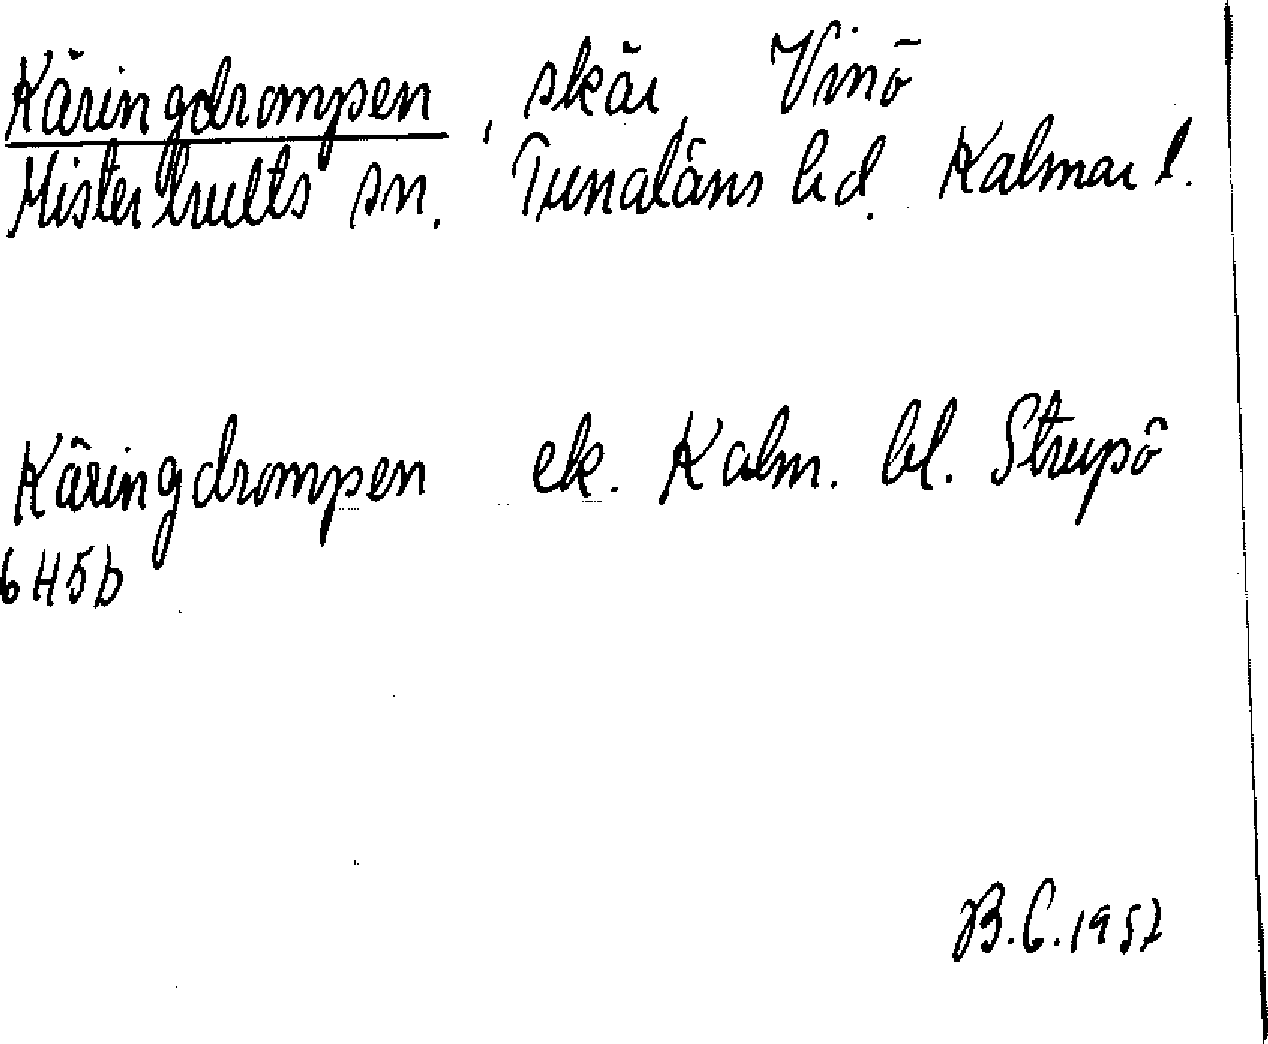 Käringdrompen, skär, Vinö
Misterhults sn. Tunaläns hd. Kalmar l.
Käringdrompen ek. Kalm. bl. Strupö
6H5b
B.C. 1957